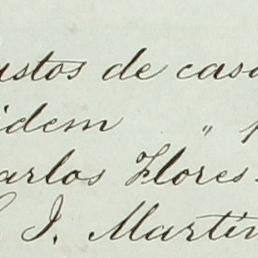 ustos de casa
idem " p
arlos Flores
J. Martin